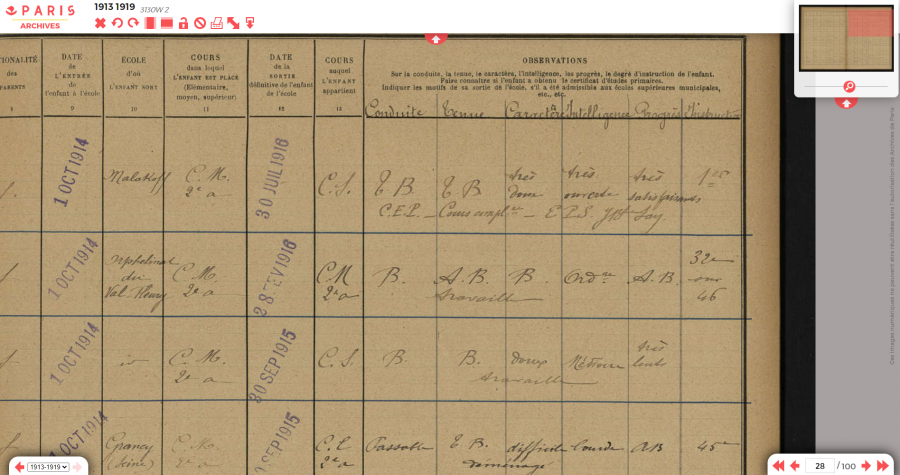 PARIS
ARCHIVES
1913 1919
3130W 2
TIONALITÉ
des
PARENTS
8
DATE
de
L'ENTRÉE
de
l'enfant à l'école
9
ÉCOLE
d'où
L'ENFANT SORT
10
COURS
dans lequel
L'ENFANT EST PLACÉ
(Élémentaire,
moyen, supérieur)
11
DATE
de la
SORTIE
définitive de l'enfant
de l'école
12
COURS
auquel
L'ENFANT
appartient
13
OBSERVATIONS
Sur la conduite, la tenue, le caractère, l'intelligence, les progrès, le degré d'instruction de l'enfant.
Faire connaître si l'enfant a obtenu le certificat d'études primaires.
Indiquer les motifs de sa sortie de l'école, s'il a été admissible aux écoles supérieures municipales,
etc., etc.
Conduite Tenue Caractère Intelligence Progrès Instruct
1 OCT 1914
Malakoff
C. M.
2e a
30 JUIL 1916
C. S.
T B
T B
très
doux
très
ouverte
très
satisfaisants
C.E.P. _ Cours compl _ E.P.S. JBte Say
1 OCT 1914
Orphelinat
du
Val-Fleury
C. M.
2e a
28 FEV 1916
C. M
2e a
B.
A. B.
B.
Ordre
A. B.
32e
sur
46
travaille
1 OCT 1914
C. M.
2e a
30 SEP 1915
C. S.
B.
B.
doux
Médiocre
très
lents
travaille
1 OCT 1914
Grancy
(Seine)
C. M.
2e a
SEP 1915
2e a
Passable
T. B.
difficile
lourde
AB
45e
déménagé
1913-1919
28 / 100